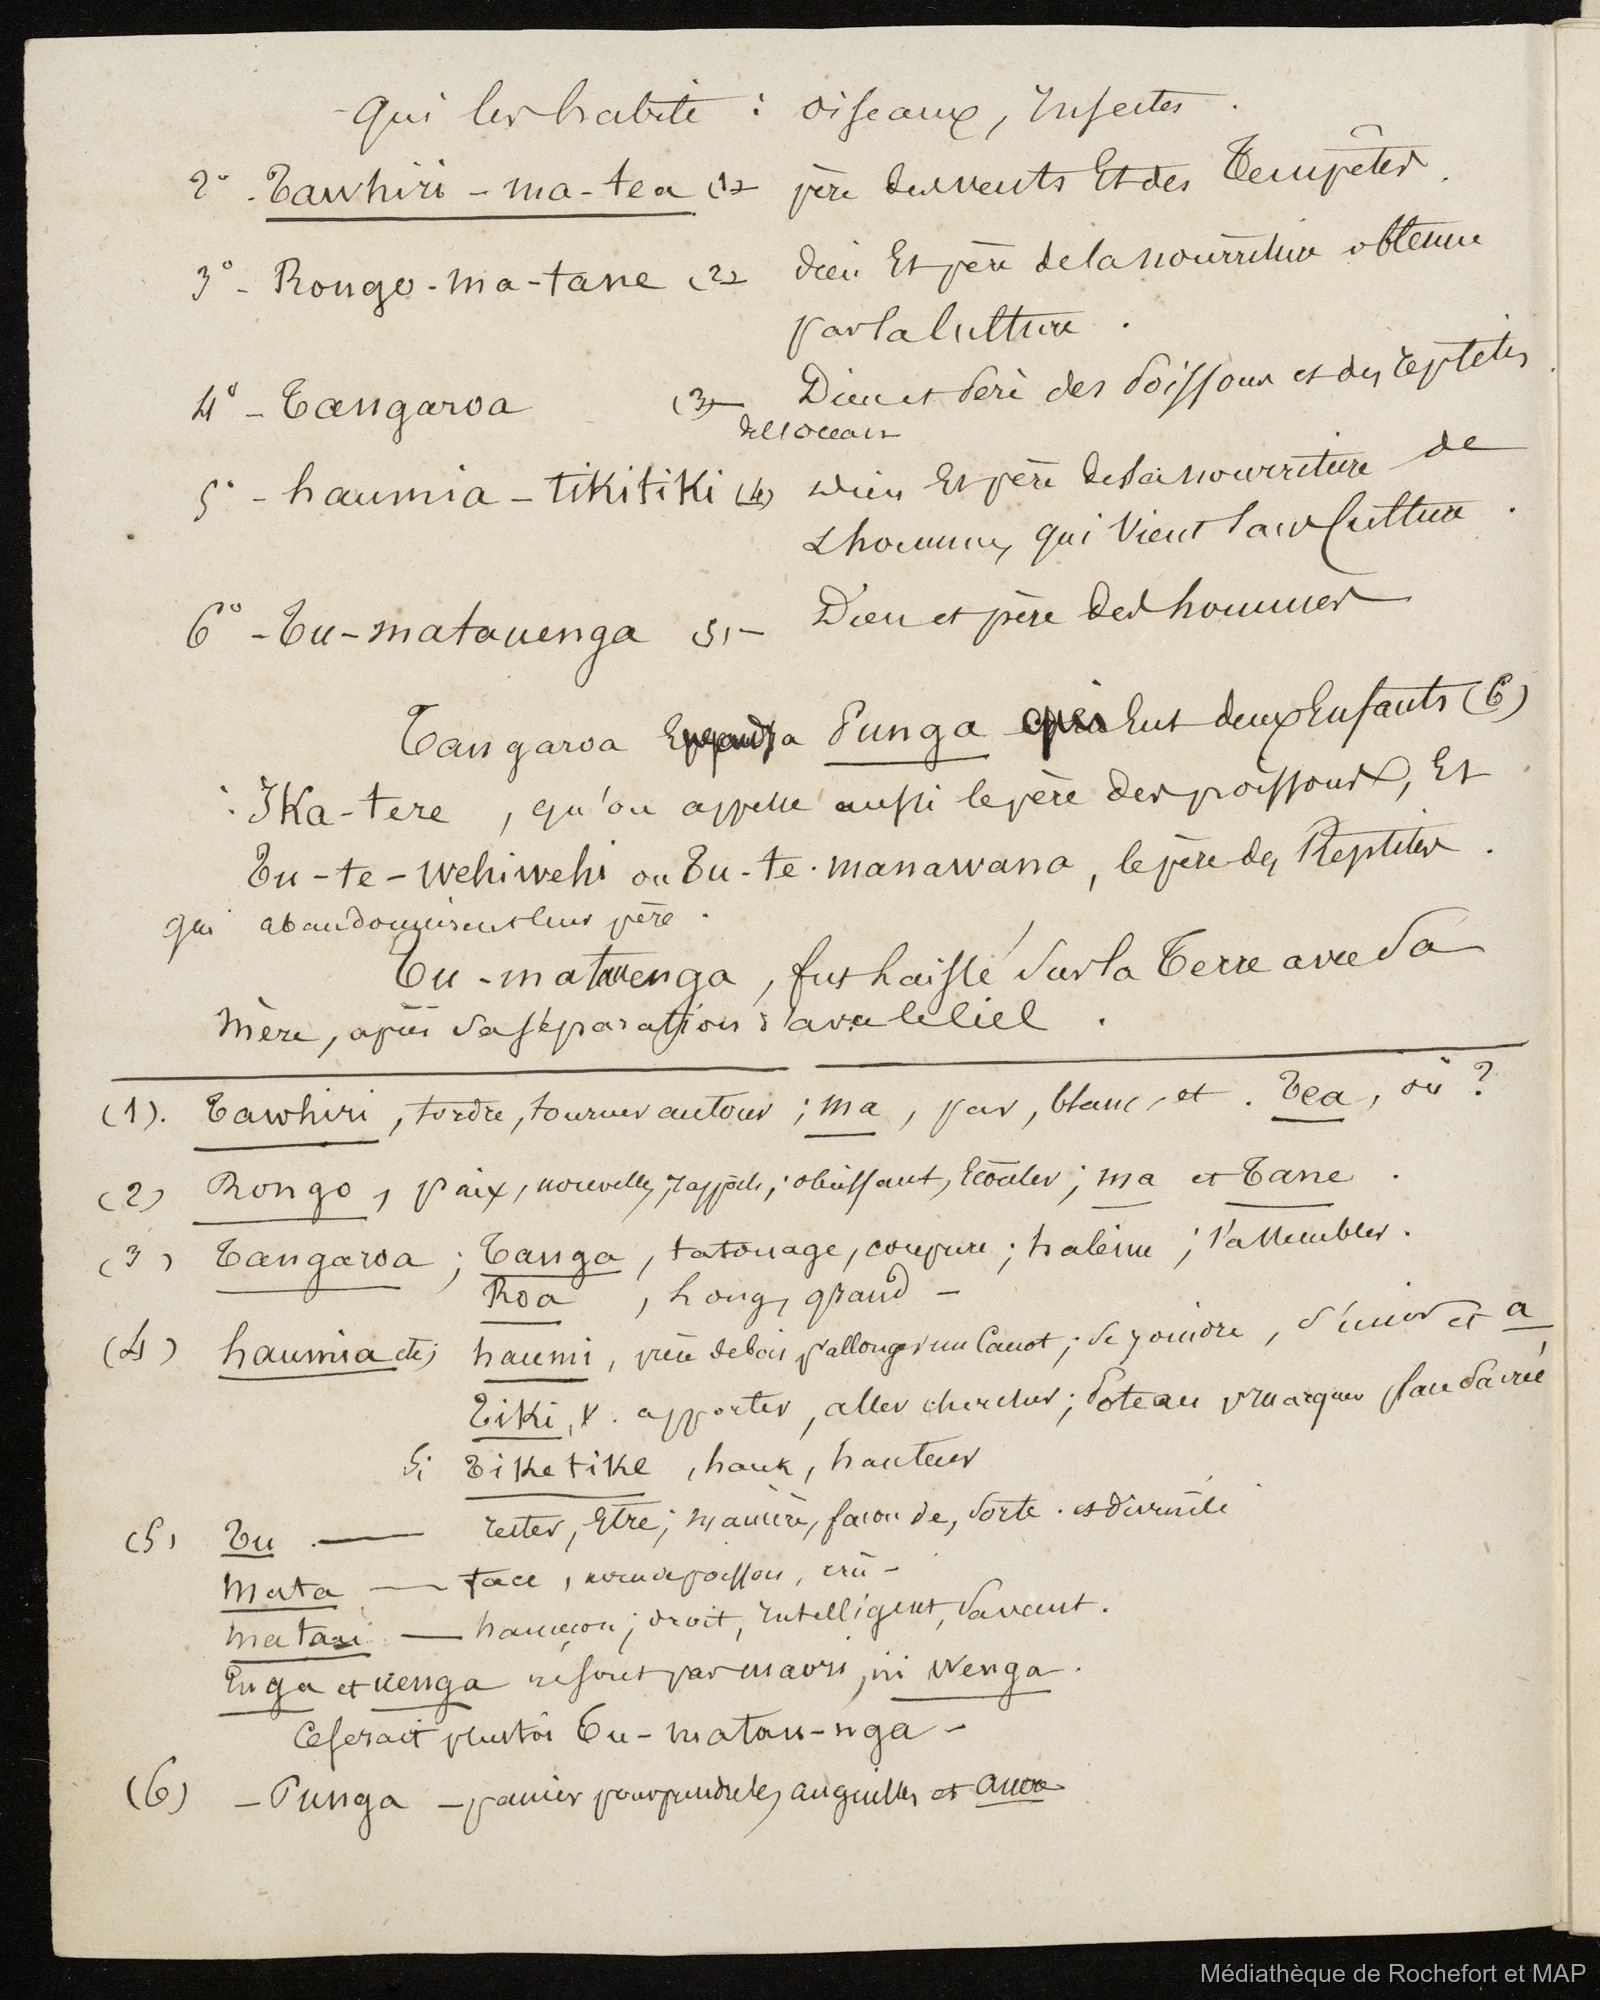 qui les habite : oiseaux, Insectes .
2° - Tawhiri - ma - tea (1) père des vents Et des Tempêtes .
3° - Rongo - ma - tane (2) dieu Et père de la nourriture obtenue
par la Culture .
4° - Tangaroa (3) Dieu et Père des Poissons et des reptiles
de l'océan
5° - haumia - tikitiki (4) Dieu Et père de la nourriture de
L'homme, qui Vient Sans Culture .
6° - Tu - matauenga (5) - Dieu et père des hommes
Tangaroa Engendra Punga qui Eut deux Enfants (6)
: IKa - tere , qu'on appelle aussi le père des poissons, Et
Tu - te - wehiwehi ou Tu - te - manawana , le père des Reptiles .
qui abandonnèrent leur père .
Tu - matauenga , fut laissé Sur la Terre avec Sa
Mère , après Sa Séparation d'avec le Ciel .
(1). Tawhiri , tordre, tourner autour ; ma , par , blanc , et . Tea , où ?
(2) Rongo , paix , nouvelle, rapports ; obéissant, Ecouter ; ma et Tane .
(3) Tangaroa ; Tanga , tatouage, coupure ; haleine ; s'assembler .
Roa , Long, grand -
(4) haumia etc; haumi , pièce de bois p allonger un Canot ; Se joindre , s'unir et a
Tiki , v . apporter , aller chercher ; Poteau p marquer place Sacrée
Si Tiketike , haut , hauteur
(5) Tu . — rester, Etre ; manière, façon de, Sorte . et divinité
Mata — face , nom de poisson , crû -
Matau — hameçon ; droit, Intelligent, Savant .
Enga et uenga ne sont pas maori , ni Wenga .
Ce serait plutôt Tu - matau - nga -
(6) - Punga - panier pour prendre les anguilles et ancre
Médiathèque de Rochefort et MAP